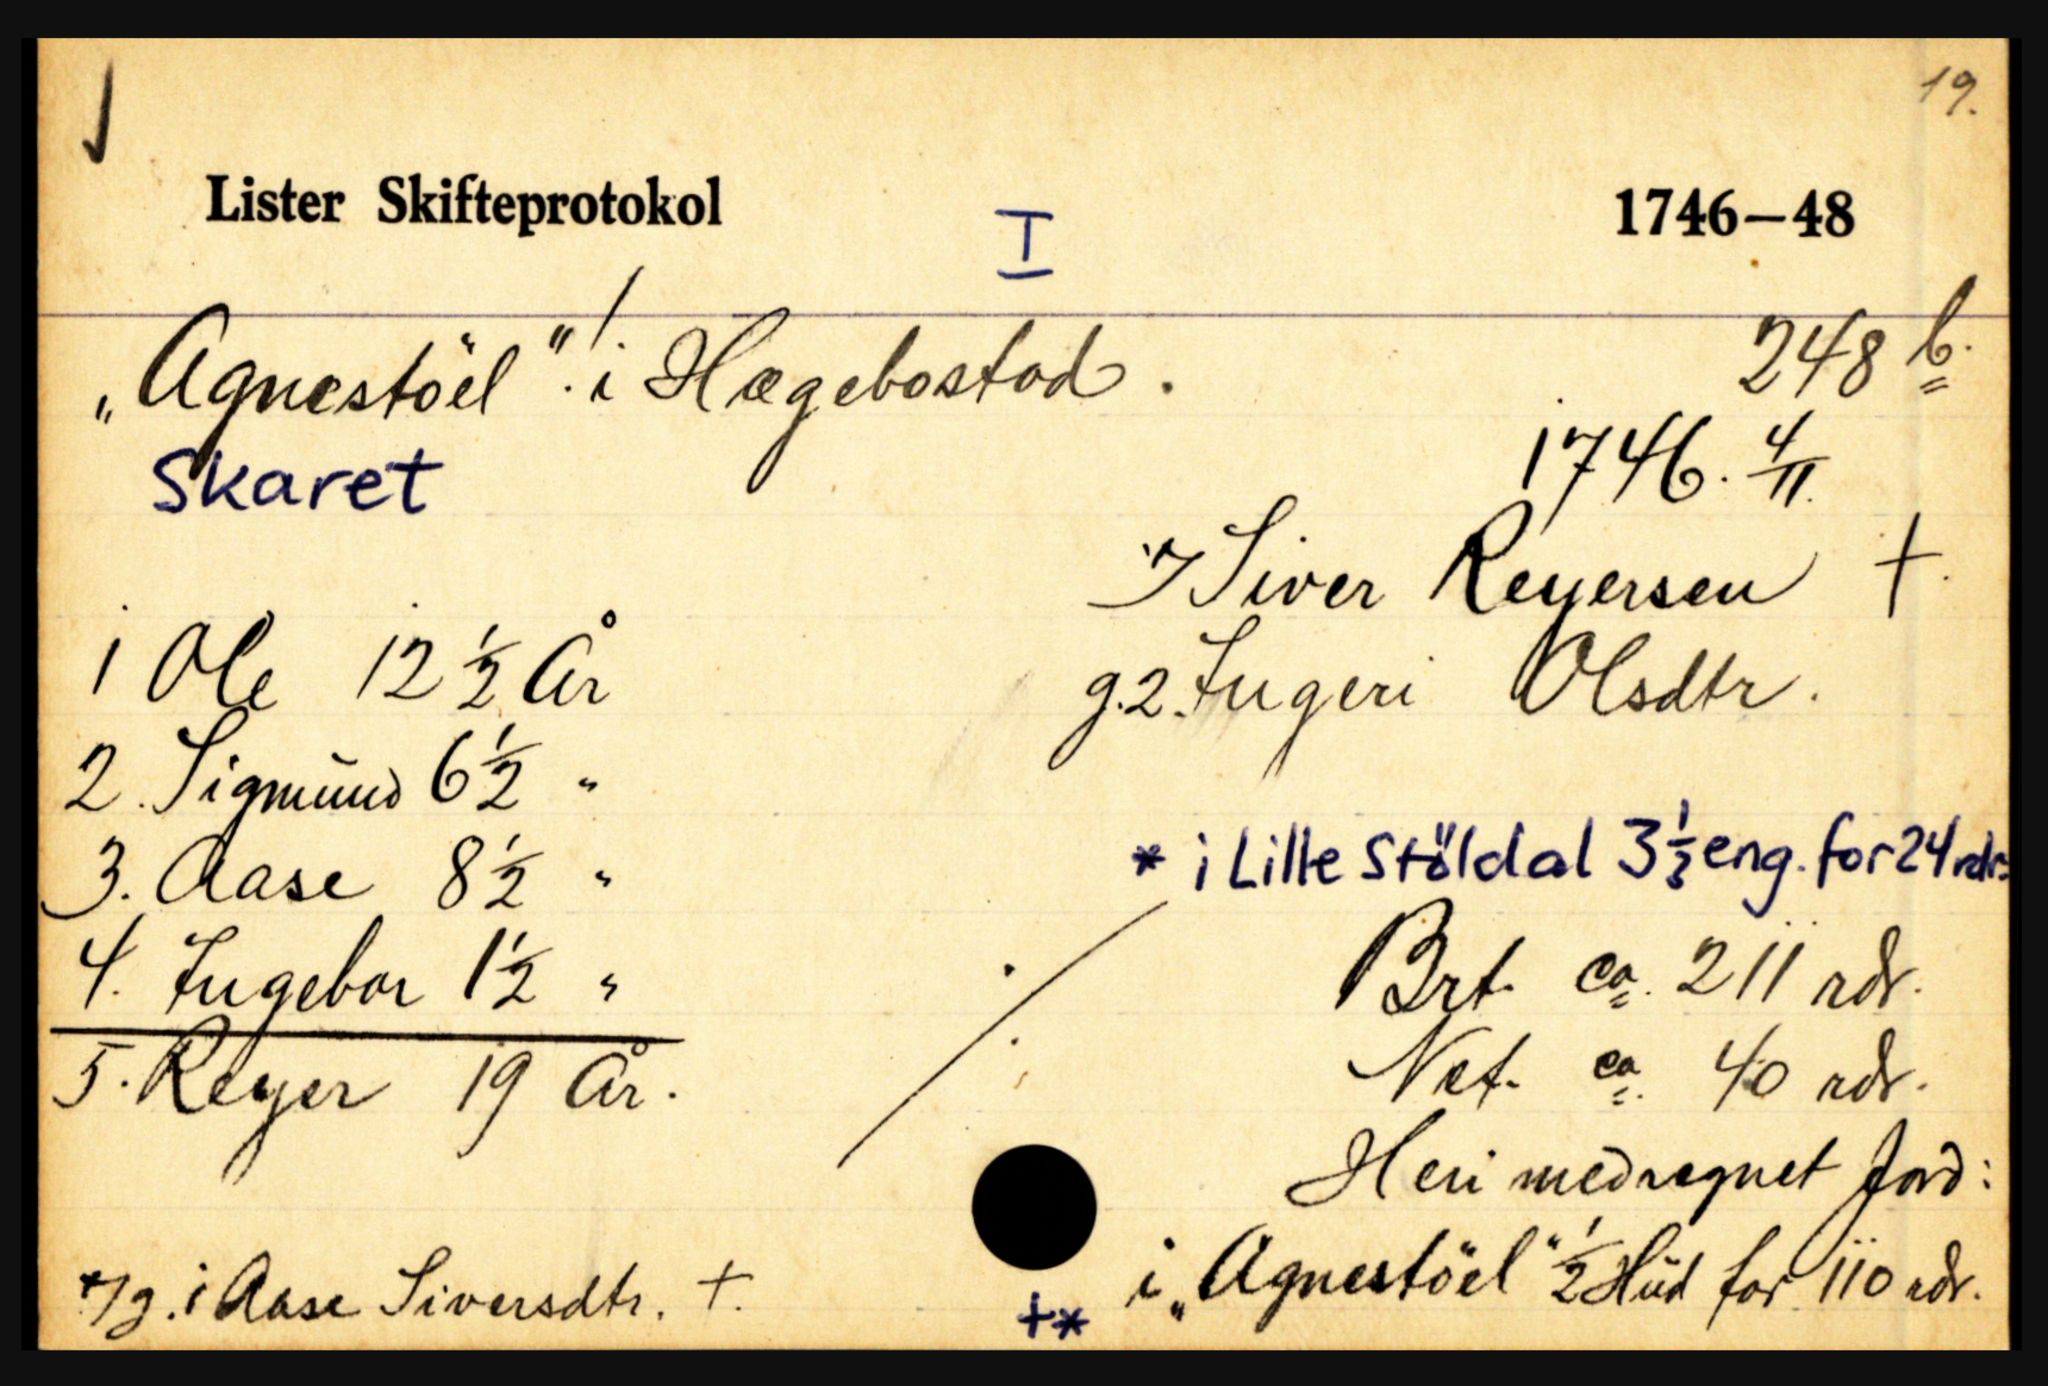 19.
Lister Skifteprotokol I 1746–48
„Agnestöel“ i Hægebostad. 248 b.
Skaret
1746. 4/11.
Siver Reyersen †.
g.2. Ingeri Olsdtr.
1 Ole 12 1/2 År
2. Sigmund 6 1/2 "
3. Aase 8 1/2 "
4. Ingebor 1 1/2 "
5. Reyer 19 År.
* i Lille Stöldal 3 1/3 eng. for 24 rdr.
Brt. ca. 211 rdr.
Net. ca. 40 rdr.
Heri medregnet Jord:
i „Agnestöel“ 1/2 Hud for 110 rdr.
+*
g. 1 Aase Siversdtr. †.